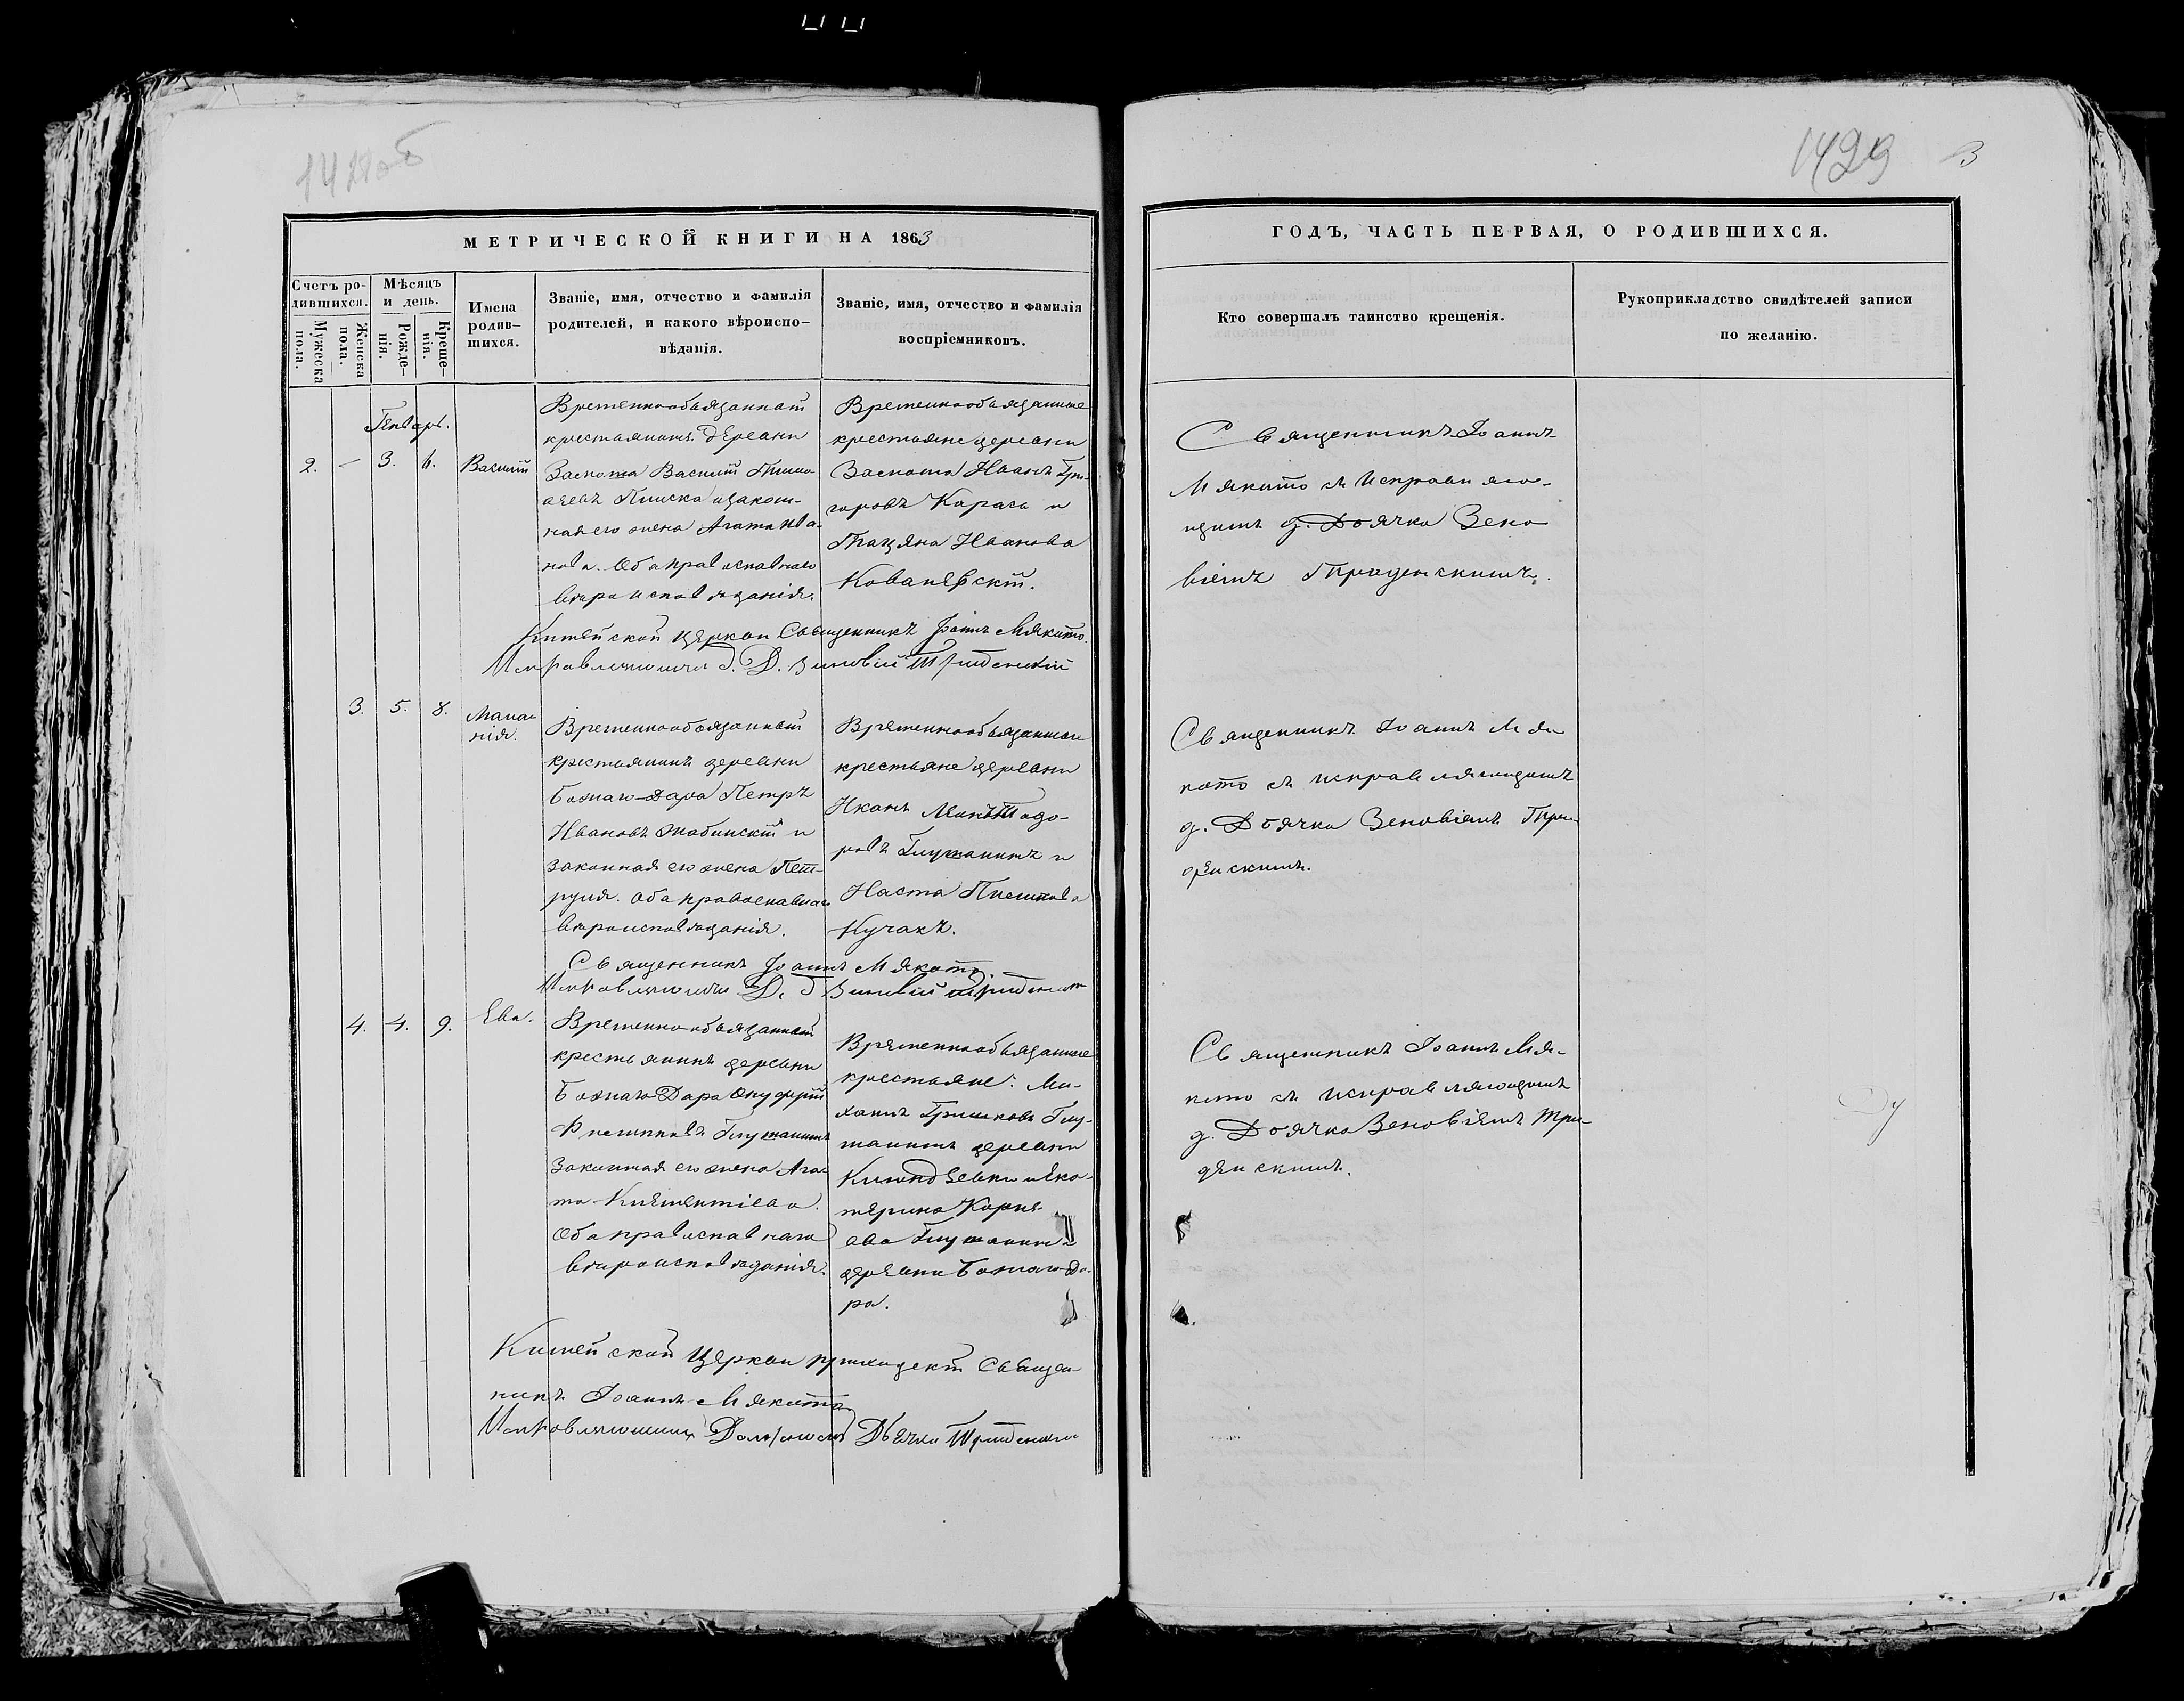 1429
3
МЕТРИЧЕСКОЙ КНИГИ НА 1863
ГОДЪ, ЧАСТЬ ПЕРВАЯ, О РОДИВШИХСЯ.
Счетъ ро-
дившихся.
Мужеска
пола.
Женска
пола.
Мѣсяцъ
и день.
Рожде-
нія.
Креще-
нія.
Имена
родив-
шихся.
Званіе, имя, отчество и фамилія
родителей, и какого вѣроиспо-
вѣданія.
Званіе, имя, отчество и фамилія
воспріемниковъ.
Кто совершалъ таинство крещенія.
Рукоприкладство свидѣтелей записи
по желанію.
Генварь.
2. – 3. 6. Василій
Временнообязанный
крестьянинъ деревни
Василій
закон-
ная его жена Агата Ива-
нова. Оба православнаго
вѣроисповѣданія.
Временнообязанные
крестьяне деревни
Иванъ Гри-
горовъ Карась и
Тацяна Иванова
Ковалевскій.
Священникъ Іоаннъ
Мякито съ исправляю-
щимъ д. Дьячка Зено
віемъ Триденскимъ.
церкви Священникъ Іоаннъ Мякито.
Исправляющій д. Д. Зиновій Триденскій
3. 5. 8. Мала-
нія.
Временнообязанный
крестьянинъ деревни
Божаго-Дара Петръ
Ивановъ Жабинскій и
законная его жена Пет-
руня. Оба православнаго
вѣроисповѣданія.
Временнообязанные
крестьяне деревни
Тодо-
ровъ Глушанинъ и
Наста
Кучакъ.
Священникъ Іоаннъ Мя-
кото съ исправляющимъ
д. Дьячка Зеновіемъ Три-
денскимъ.
Священникъ Іоаннъ Мякото.
Исправляющій Д. д Зиновій Триденскій
4. 4. 9. Ева.
Временнообязанный
крестьянинъ деревни
Божаго Дара Онуфрій
Глушанинъ
Законная его жена Ага-
та Климентіева.
Оба православнаго
вѣроисповѣданія.
Временнообязанные
крестьяне: Ми-
хаилъ Гришковъ Глу-
шанинъ деревни
и Ека-
терина Корне-
ева Глушанинъ
деревни Божаго Да-
ра.
Священникъ Іоаннъ Мя-
кито съ исправляющимъ
д. Дьячка Зеновіемъ Три-
денскимъ.
Церкви приходскій Священ-
никъ Іоаннъ Мякито
Исправляющій Должность Дьячка Триденскій